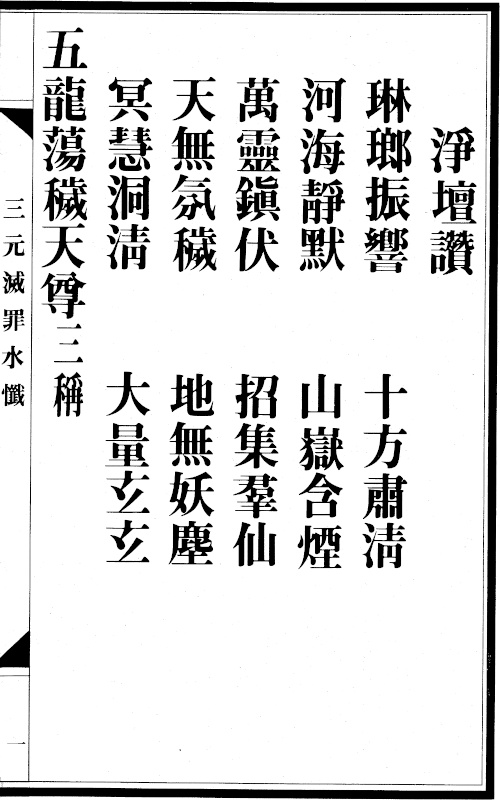 淨壇讚
琳瑯振響　十方肅清
河海靜默　山嶽含煙
萬靈鎭伏　招集羣仙
天無氛穢　地無妖塵
冥慧洞清　大量玄玄
五龍蕩穢天尊三稱
三元滅罪水懺
一